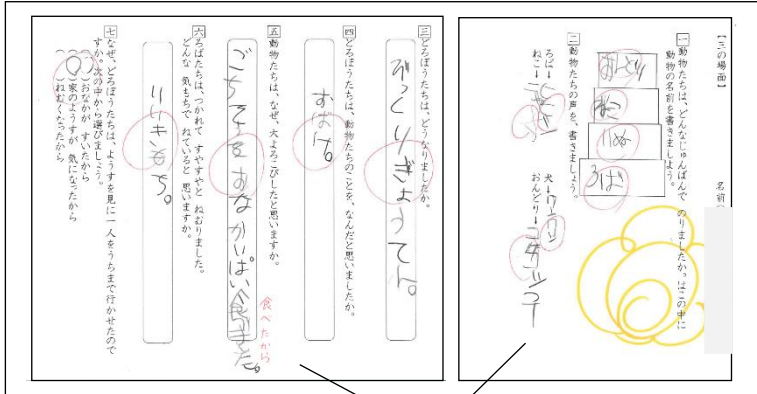 【三の場面】
名前
一 動物たちは、どんなじゅんばんで のりましたか。はこの中に
動物の名前を書きましょう。
おんどり
ねこ
いぬ
ろば
二 動物たちの声を、書きましょう。
ろば→
ねこ→
犬→ワンワン
おんどり→コケコッコー
三 どろぼうたちは、どうなりましたか。
びっくりぎょうてん。
四 どろぼうたちは、動物たちのことを、なんだと思いましたか。
おばけ。
五 動物たちは、なぜ、大よろこびしたと思いますか。
ごちそうをおなかいっぱい食べました。
食べたから
六 ろばたちは、つかれて すやすやと ねむりました。
どんな 気もちで ねていると 思いますか。
いいきもち。
七 なぜ、どろぼうたちは、ようすを見に一人をうちまで行かせたので
すか。次の中から選びましょう。
( )おなかが すいたから
(○)家のようすが 気になったから
( )ねむくなったから